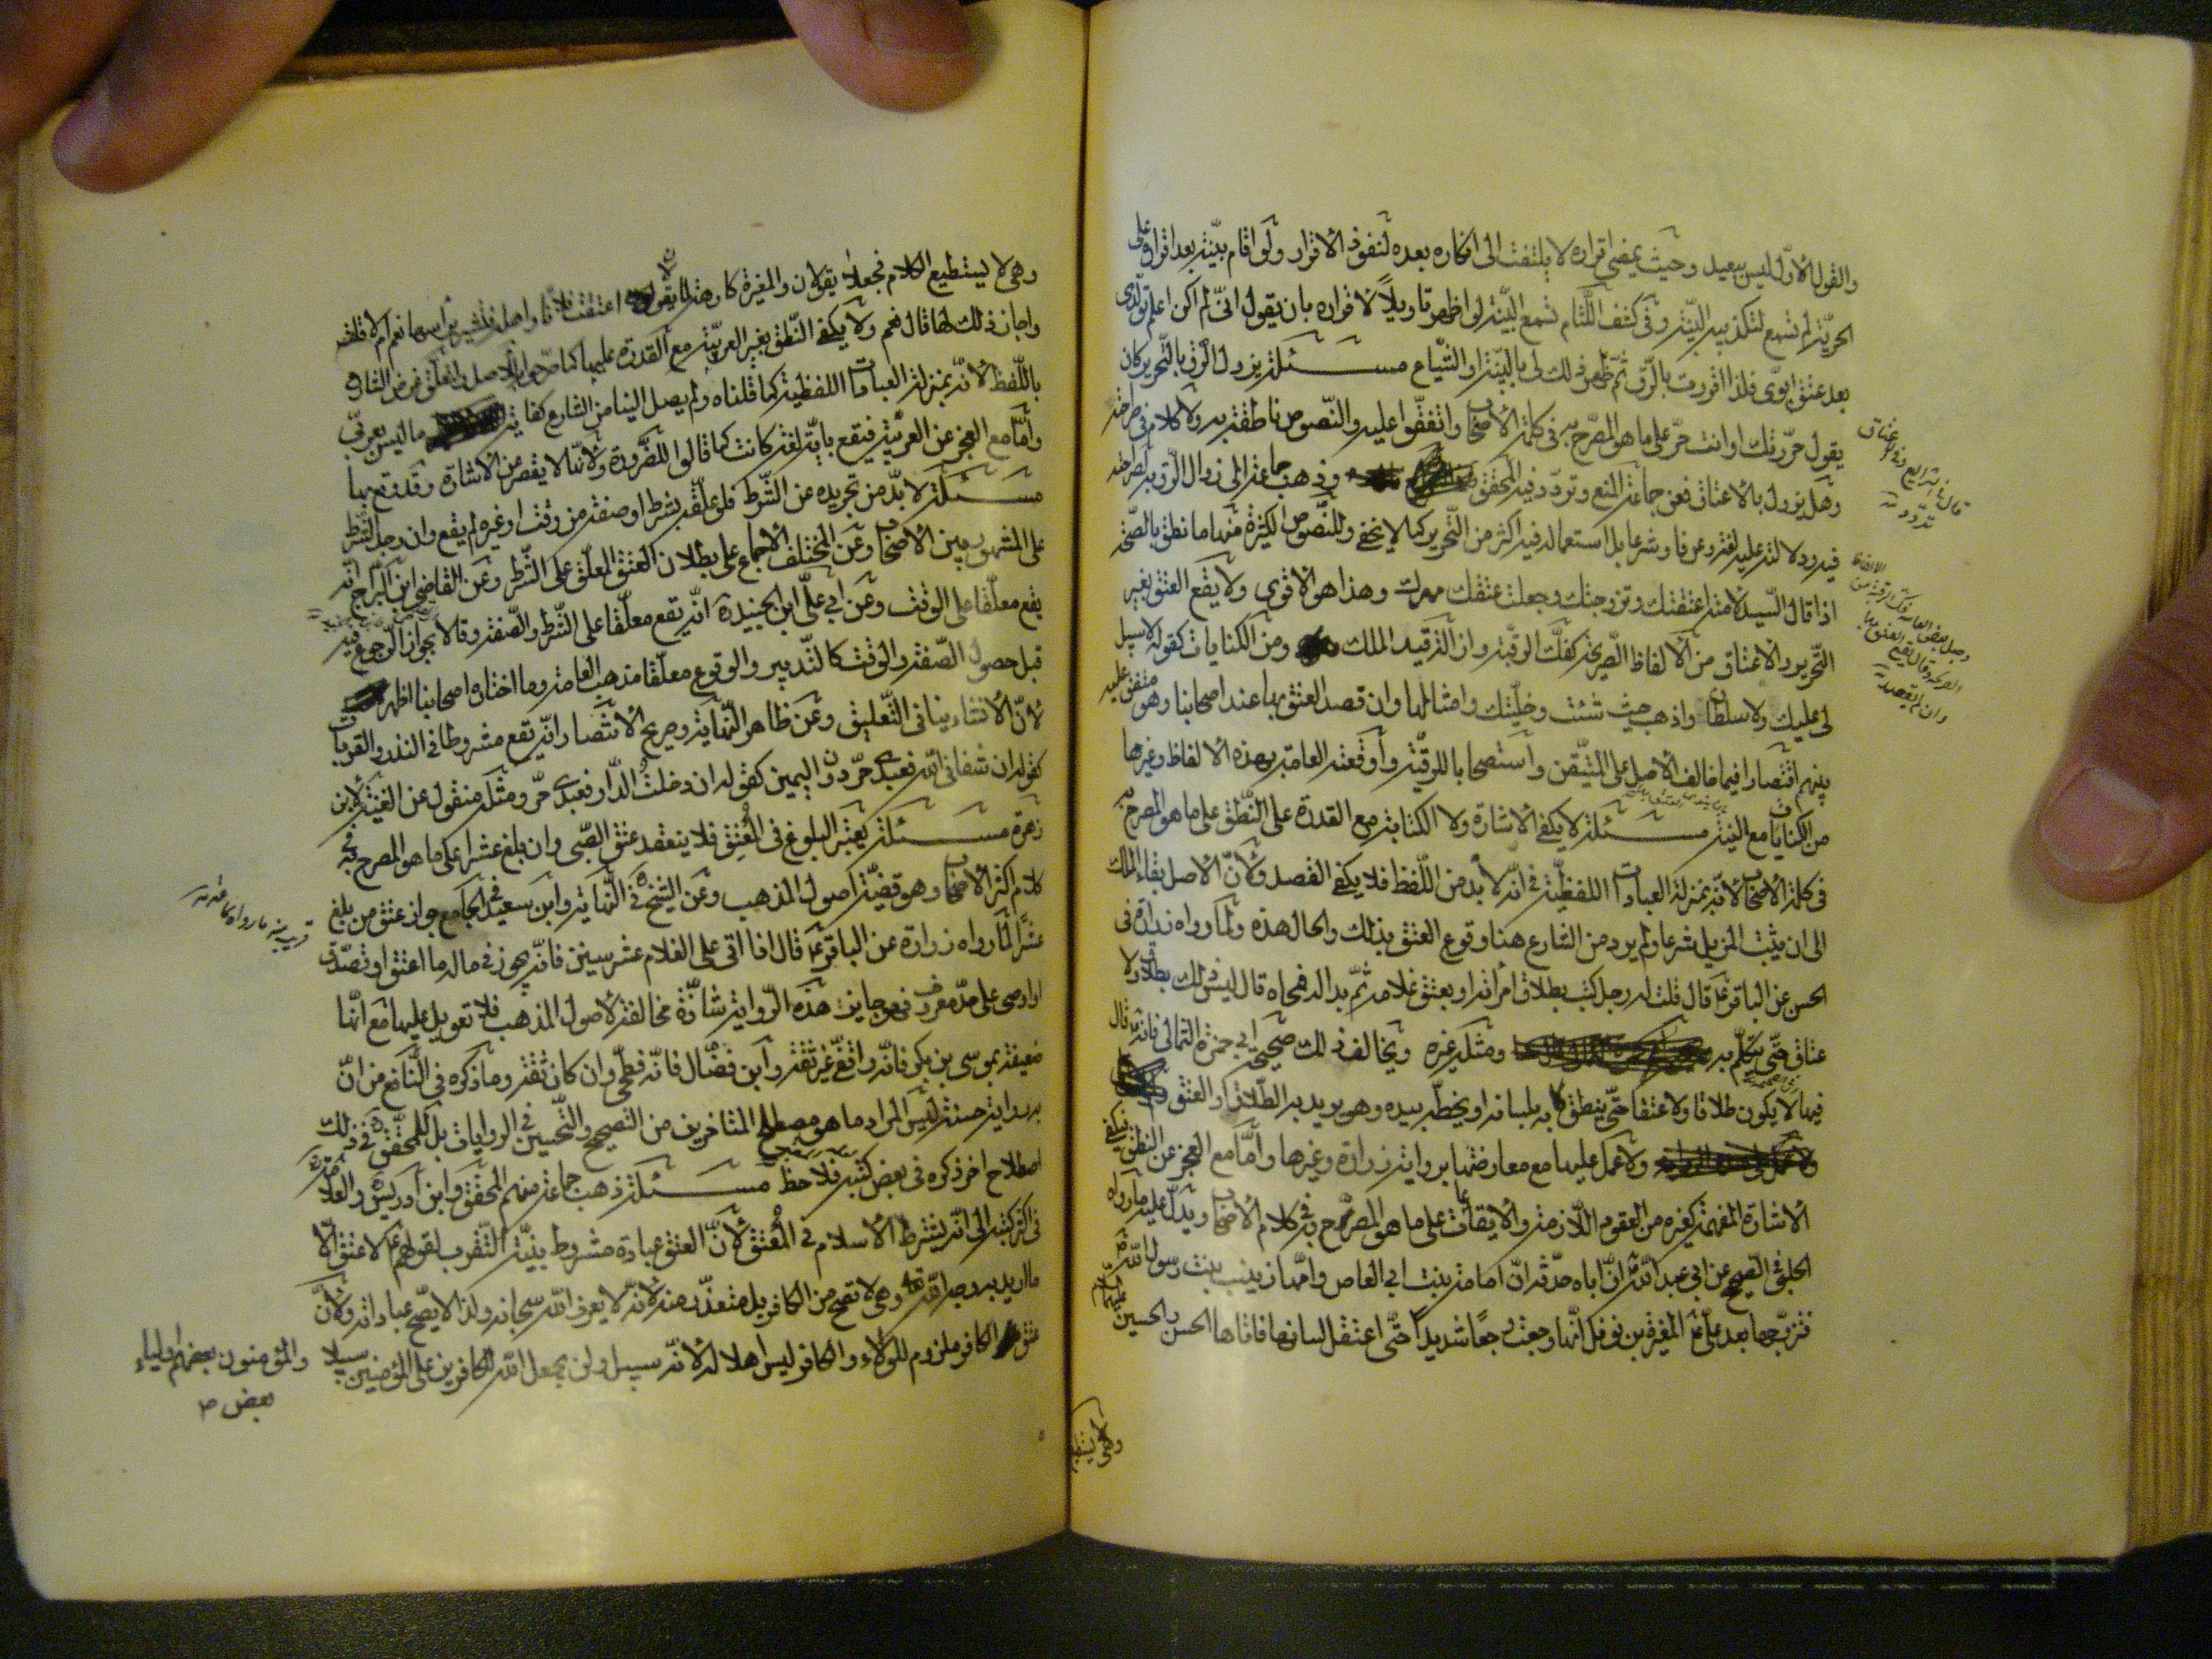 والقول الأوّل ليس ببعيد وحيث يمضي اقراره لا يلتفت الى انكاره بعده لنفوذ الاقرار ولو اقام بيّنة بعد اقراره على
الحريّة لم تسمع لتكذيبه البيّنة وفي كشف اللّثام تسمع البيّنة لو اظهر تاويلاً لاقراره بان يقول انّي لم اكن اعلم تولّدي
بعد عتق ابويّ فلذا اقررت بالرّق ثمّ ظهر ذلك لي بالبيّنة او الشّياع مسئلة يزول الرّق بالتّحرير كان
يقول حرّرتك او انت حرّ على ما هو المصرّح به في كلمة الأصحاب واتفقوا عليه والنّصوص ناطقة به ولا كلام في صراحته
وهل يزول بالاعتاق فعن جماعة المنع وتردّد فيه المحقق وذهب جماعة الى زوال الرّق به لصراحته
فيه ودلالته عليه لغة وعرفا وشرعا بل استعماله فيه اكثر من التّحرير كما لا يخفى وللنّصوص الكثيرة منها ما نطق بالصّحّة
اذا قال السّيد لامته اعتقتك وتزوجتك وجعلت عتقك مهرك وهذا هو الأقوى ولا يقع العتق بغير
التّحرير والاعتاق من الألفاظ الصّريحة كفكّ الرقبة وازالة قيد الملك ومن الكنايات كقوله لا سبيل
لي عليك ولا سلطان واذهب حيث شئت وخلّيتك وامثالها وان قصد العتق بها عند اصحابنا وهو متفق عليه
بينهم اقتصارا فيما خالف الأصل على المتيّقن واستصحابا للرقيّة وأوقعته العامة بهذه الالفاظ وغيرها
من الكنايات مع النيّة مسئلة لا يكفي الاشارة ولا الكتابة مع القدرة على النّطق على ما هو المصرح به
في كلمة الأصحاب لأنّه بمنزلة العبادات اللفظيّة في انه لا بد من اللّفظ فلا يكفي القصد ولأنّ الأصل بقاء الملك
الى ان يثبت المزيل شرعا ولم يرد من الشارع هنا وقوع العتق بذلك والحال هذه ولما رواه زرارة في
الحسن عن الباقر ع قال قلت له رجل كتب بطلاق امراته او بعتق غلامه ثمّ بدا له فمحاه قال ليس ذلك بطلاق ولا
عتاق حتّى يتكلّم به ومثله غيره ويخالف ذلك صحيحة ابي حمزة الثمالي فانه قال
فيها لا يكون طلاقا ولا عتقا حتّى ينطق به بلسانه او يخطّه بيده وهو يريد به الطّلاق او العتق
ولا عمل عليها مع معارضتها برواية زرارة وغيرها وامّا مع العجز عن النطق فيكفي
الاشارة المفهمة كغيره من العقود اللّازمة والايقاعات على ما هو المصرّح به في كلام الأصحاب ويدلّ عليه ما رواه
الحلبي في الصحيح عن ابي عبد اللّه ع انّ اباه حدّثه انّ امامة بنت ابي العاص وامّها زينب بنت رسول اللّه ص
فتزوّجها بعد عليّ ع المغيرة بن نوفل انّها وجعت وجعًا شديدًا حتّى اعتقل لسانها فاتاها الحسن والحسين عليهما السلام
وهي لا يستطيع
قال في الشرايع وفي الاعتاق
تردّد منه
وهي لا يستطيع الكلام فجعلا يقولان والمغيرة كاره لما يقولان اعتقت فلانا واهله فتشير برأسها نعم ام لا قلت
واجاز ذلك لها قال نعم ولا يكفي النّطق بغير العربيّة مع القدرة عليها
باللّفظ لأنّه بمنزلة العبادات اللفظية كما قلناه ولم يصل الينا من الشارع كفاية ما ليس بعربيّ
وأمّا مع العجز عن العربيّة فيقع بايّة لغة كانت كما قالوا للضّرورة ولأنّها لا يقصر من الاشارة وقد وقع بها
مسئلة لا بدّ من تجريده عن الشّرط فلو علّقه بشرط او صفة من وقت او غيره لم يقع وان وجد الشّرط
على المشهور بين الأصحاب وعن المختلف الاجماع على بطلان العتق المعلّق على الشّرط وعن القاضي ابن البرّاج انّه
يقع معلّقا على الوقت وعن ابي عليّ ابن الجنيد انّه يقع معلّقا على الشّرط والصّفة وقالا بجواز الرّجوع فيه
قبل حصول الصّفة والوقت كالتّدبير والوقوع معلّقا مذهب العامة وما اختاره اصحابنا اظهر
لأنّ الانشاء ينافي التّعليق وعن ظاهر النّهاية وصريح الانتصار انّه يقع مشروطا في النذر والقربات
كقوله ان شفاني اللّه فعبدي حرّ دون اليمين كقوله ان دخلت الدّار فعبدي حرّ ومثله منقول عن الغنية لابن
زهرة مسئلة يعتبر البلوغ في المُعتِق فلا ينعقد عتق الصّبي وان بلغ عشرا على ما هو المصرح به في
كلام اكثر الأصحاب وهو قضيّة اصول المذهب وعن الشيخ في النّهاية وابن سعيد في الجامع جواز عتق من بلغ
عشرًا لما رواه زرارة عن الباقر ع قال اذا اتى على الغلام عشر سنين فانّه يجوز في ماله ما اعتق او تصدّق
او اوصى على حدّ معروف فهو جايز هذه الرّواية شاذّة مخالفة لأصول المذهب فلا تعويل عليها مع انّها
ضعيفة بموسى بن بكر فانّه واقفيّ غير ثقة وابن فضّال فانّه فطحيّ وان كان ثقة وما ذكره في النّافع من انّ
به رواية حسنة ليس المراد ما هو مصطلح المتاخرين من التصحيح والتّحسين في الروايات بل للمحقّق في ذلك
اصطلاح اخر ذكره في بعض كتبه فلاحظ مسئلة ذهب جماعة منهم المحقق وابن ادريس والعلامة
في اكثر كتبه الى انّه يشترط الاسلام في المُعتِق لأنّ العتق عبادة مشروط بنيّة التّقرب لقولهم ع لا عتق الّا
ما اريد به وجه اللّه تعالى وهي لا تصحّ من الكافر بل متعذّر منه لأنّه لا يعرف اللّه سبحانه ولذا لا يصحّ عباداته ولأنّ
عتق الكافر ملزوم للولاء والكافر ليس اهلا له لأنّه سبيل ولن يجعل اللّه للكافرين على المؤمنين سبيلا
والمؤمنون بعضهم اولياء
بعض ص